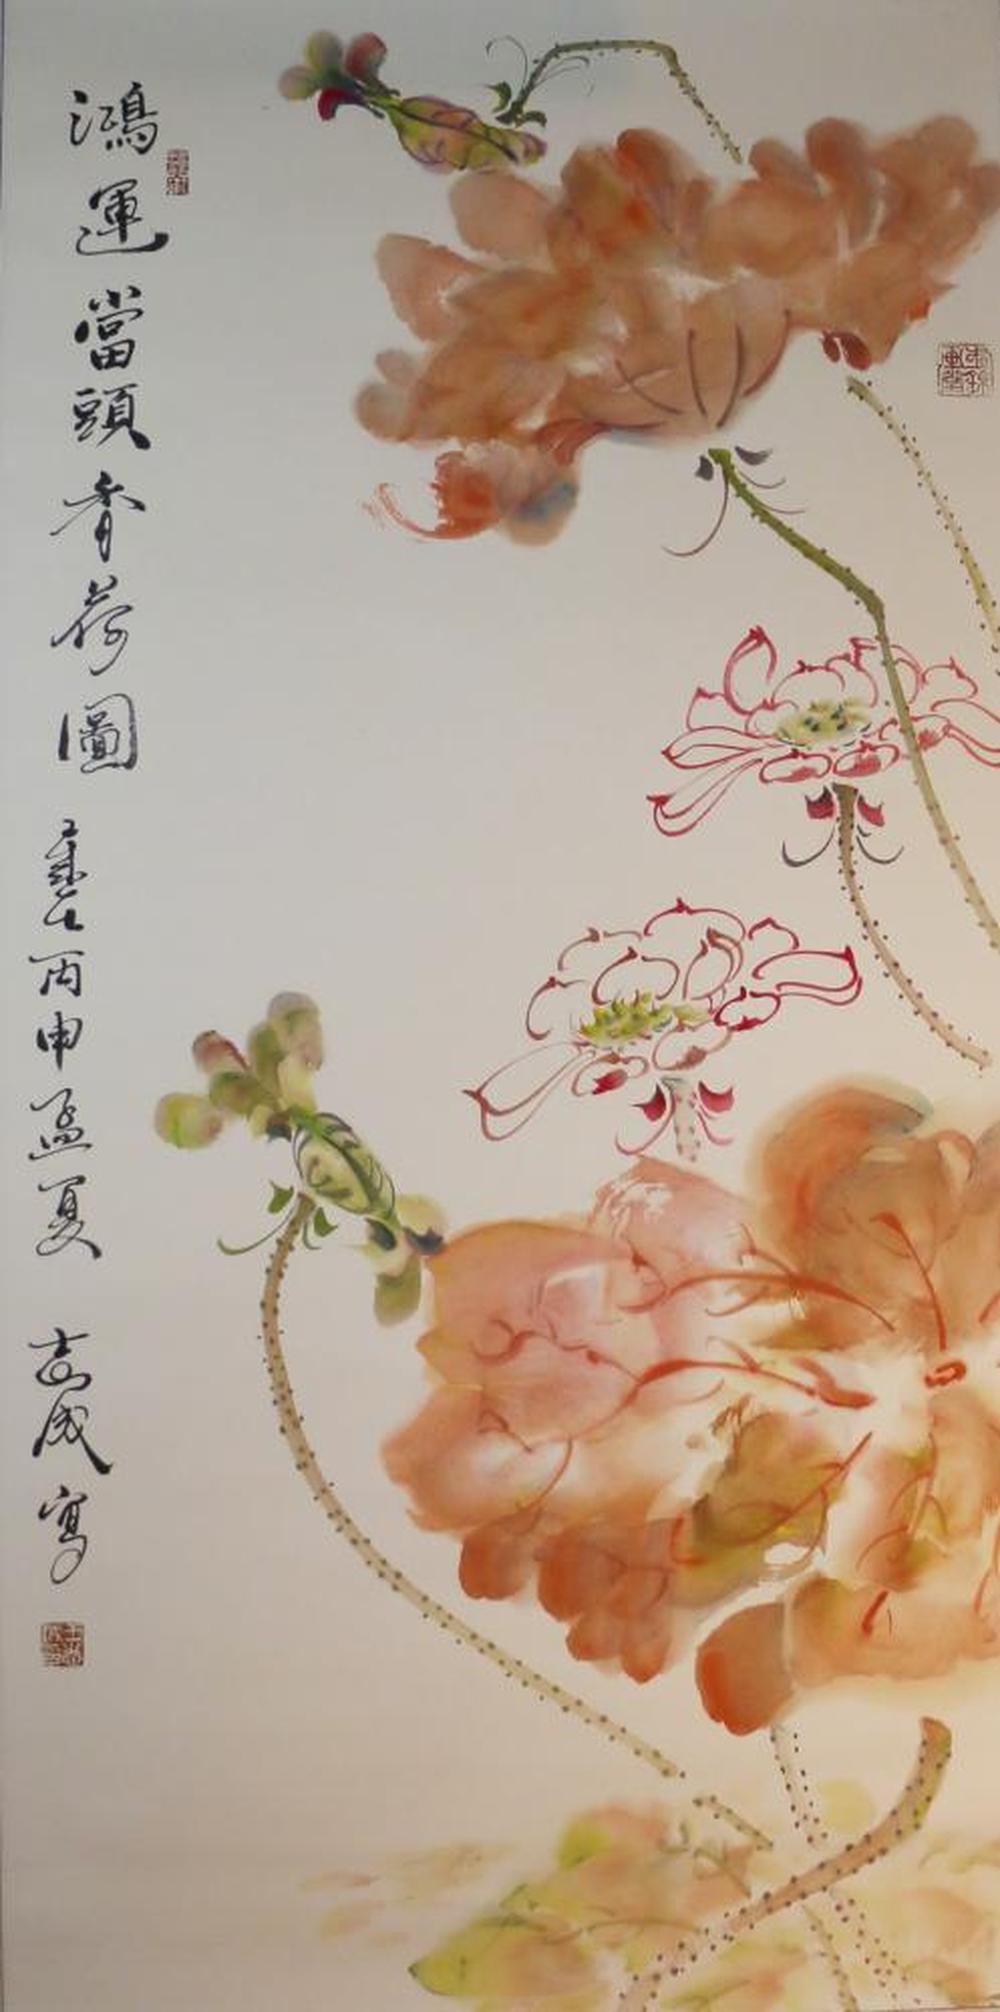 鴻運當頭香荷圖
歲在丙申孟夏 志成寫